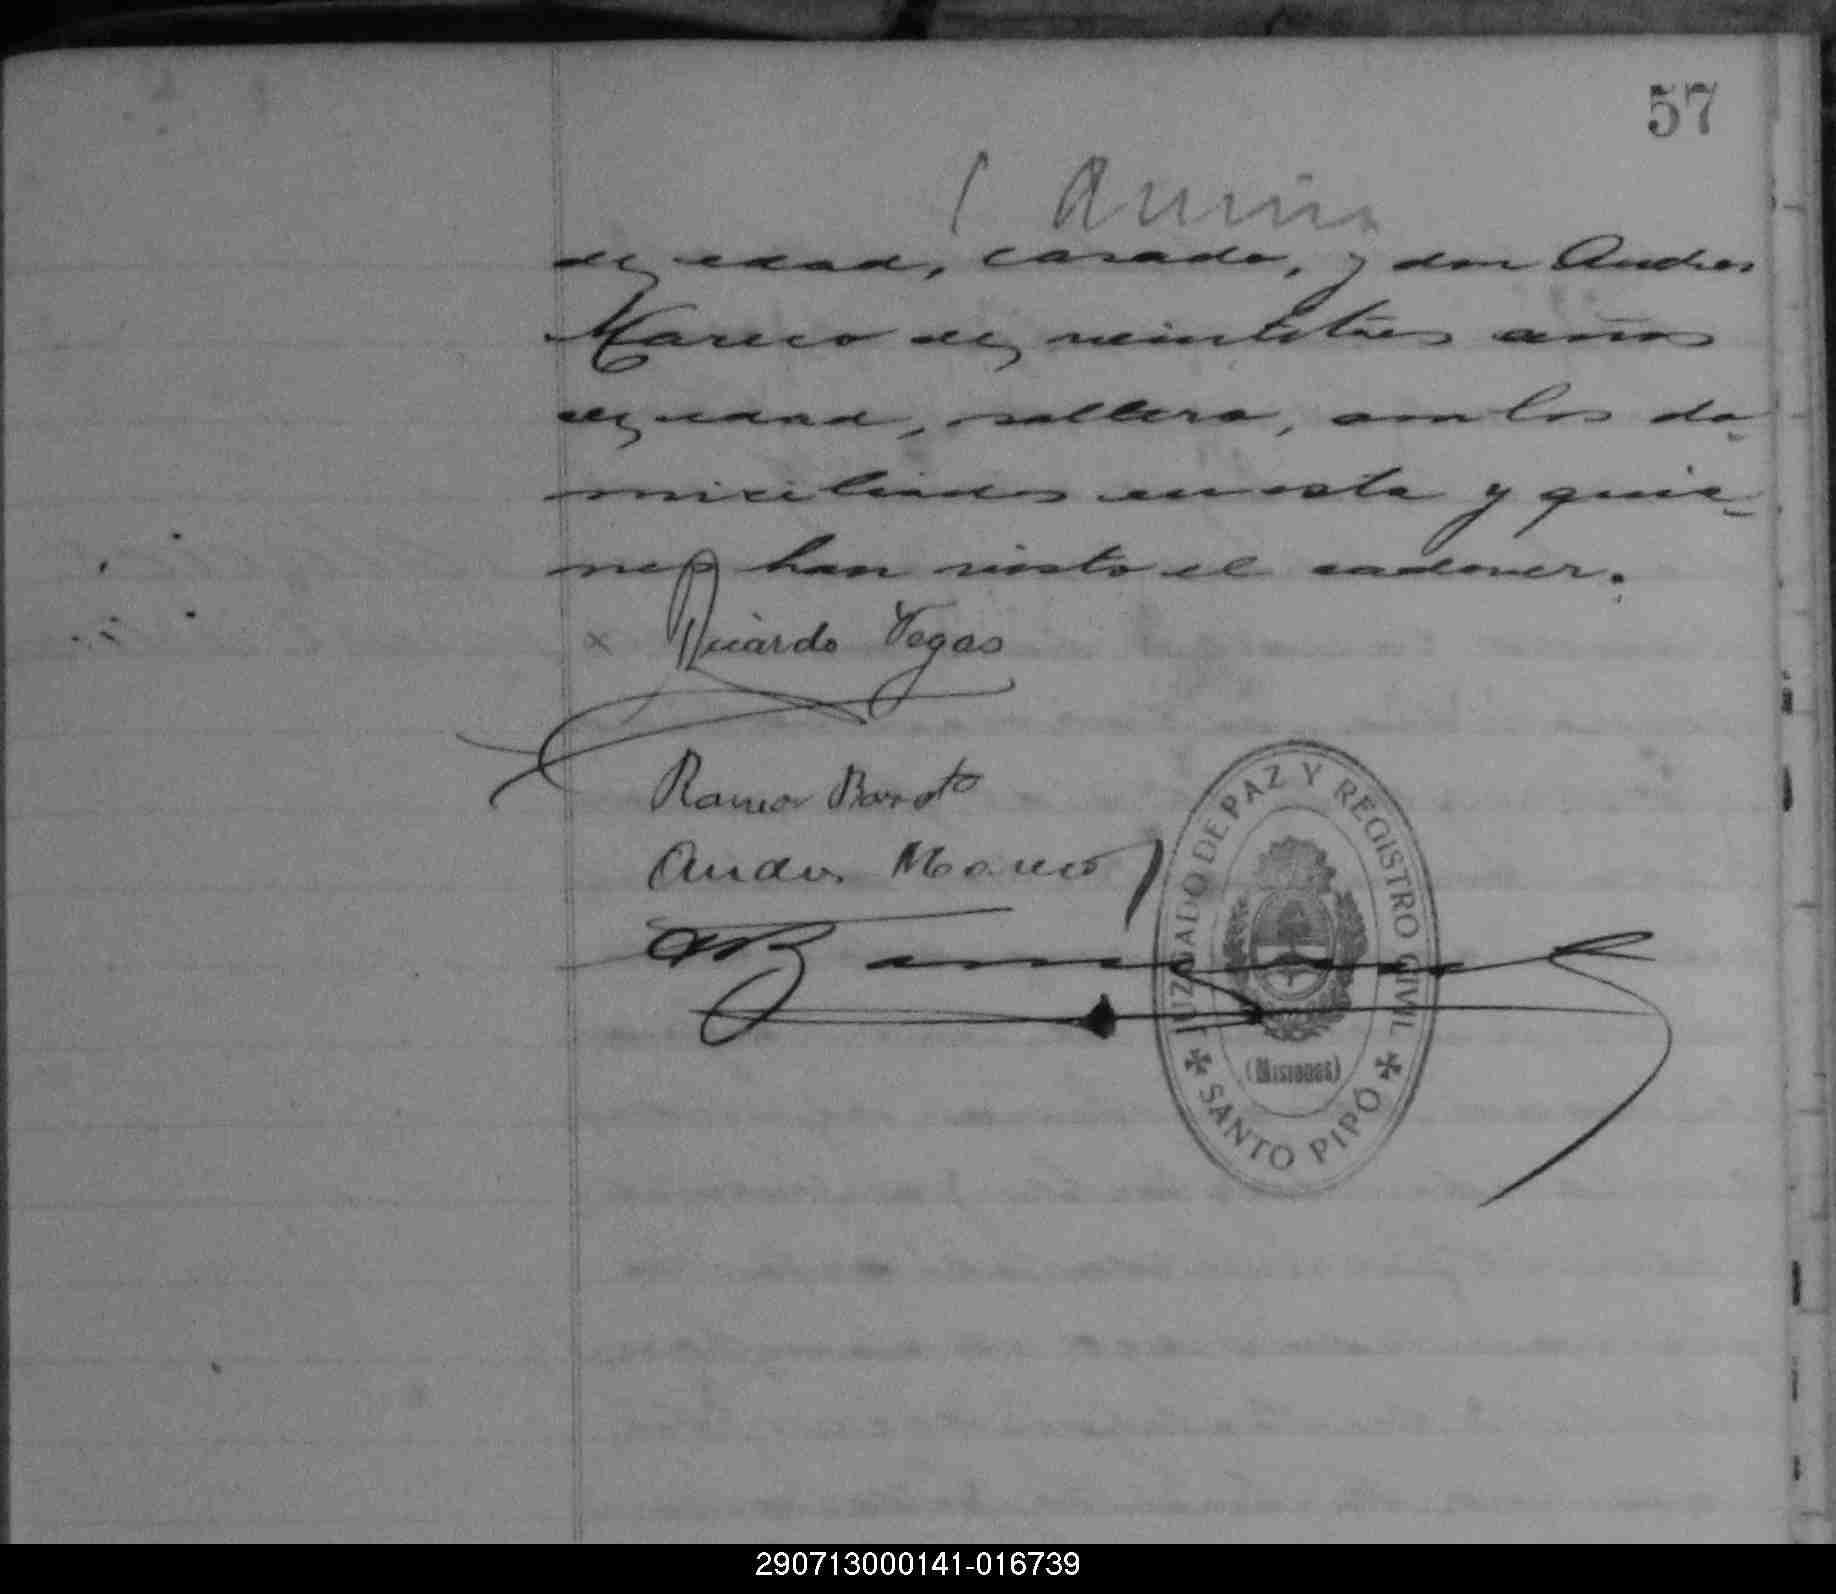 57
de edad, casado, y don Andres
Mareco de veintitres años
de edad, soltero, ambos do-
miciliados en esta y quie-
nes han visto el cadaver.
x Ricardo Vegas
Ramon
Andres Mareco
JUZGADO DE PAZ Y REGISTRO CIVIL
(MISIONES)
SANTO PIPÓ
290713000141-016739